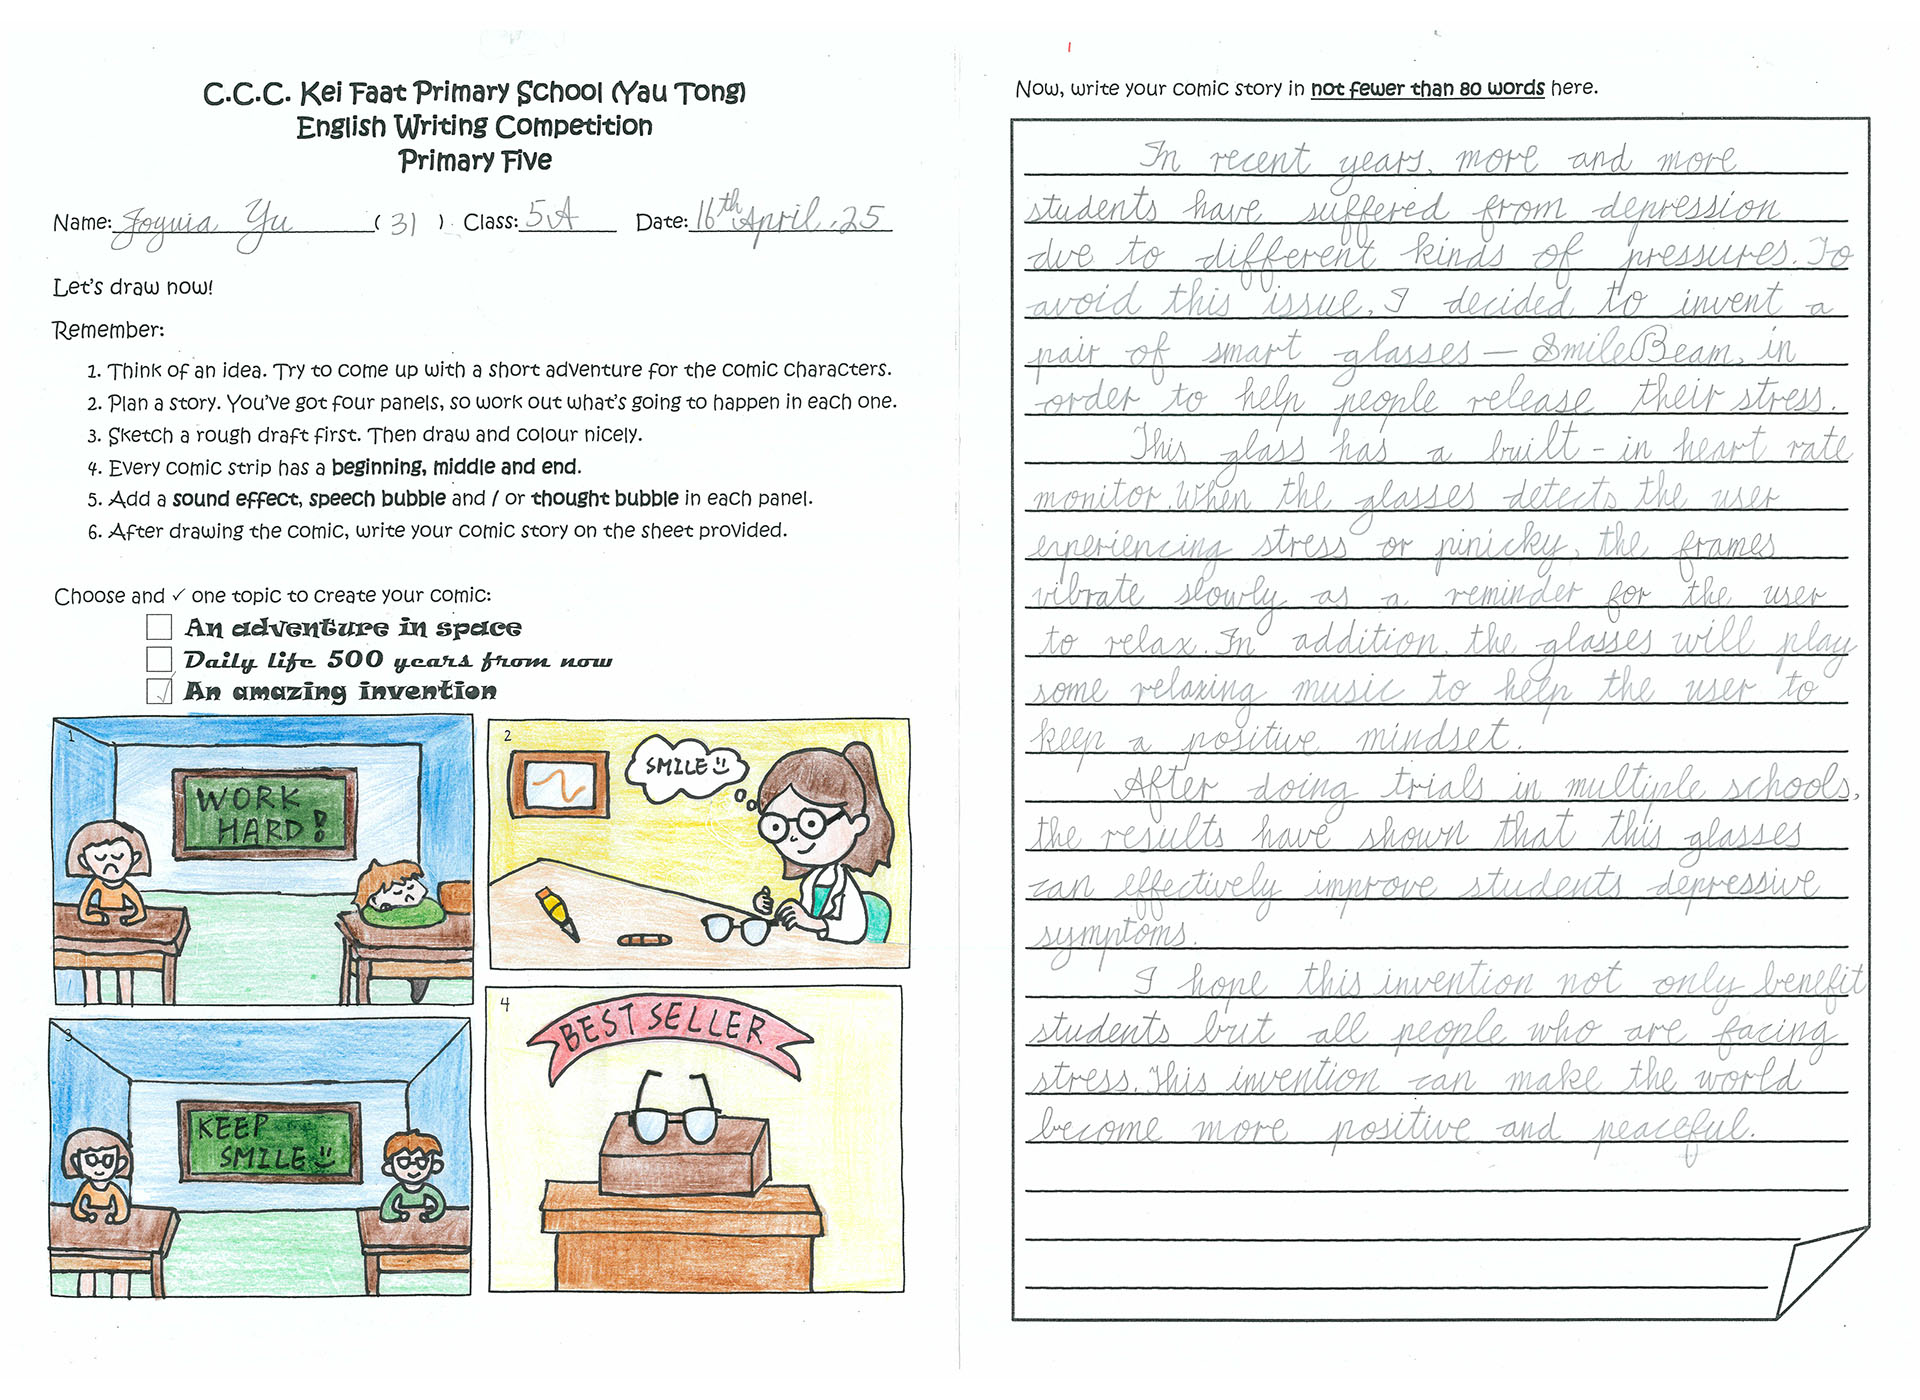 C.C.C. Kei Faat Primary School (Yau Tong)
English Writing Competition
Primary Five
Name: Joyuia Yu (31) Class: 5A Date: 16th April, 25
Let's draw now!
Remember:
1. Think of an idea. Try to come up with a short adventure for the comic characters.
2. Plan a story. You've got four panels, so work out what's going to happen in each one.
3. Sketch a rough draft first. Then draw and colour nicely.
4. Every comic strip has a beginning, middle and end.
5. Add a sound effect, speech bubble and / or thought bubble in each panel.
6. After drawing the comic, write your comic story on the sheet provided.
Choose and ✓ one topic to create your comic:
An adventure in space
Daily life 500 years from now
✓ An amazing invention
1
WORK
HARD!
2
SMILE
3
KEEP
SMILE
4
BEST SELLER
Now, write your comic story in not fewer than 80 words here.
In recent years, more and more
students have suffered from depression
due to different kinds of pressures. To
avoid this issue, I decided to invent a
pair of smart glasses — SmileBeam, in
order to help people release their stress.
This glass has a built-in heart rate
monitor. When the glasses detects the user
experiencing stress or pinicky, the frames
vibrate slowly as a reminder for the user
to relax. In addition, the glasses will play
some relaxing music to help the user to
keep a positive mindset.
After doing trials in multiple schools,
the results have shown that this glasses
can effectively improve students depressive
symptoms.
I hope this invention not only benefit
students but all people who are facing
stress. This invention can make the world
become more positive and peaceful.